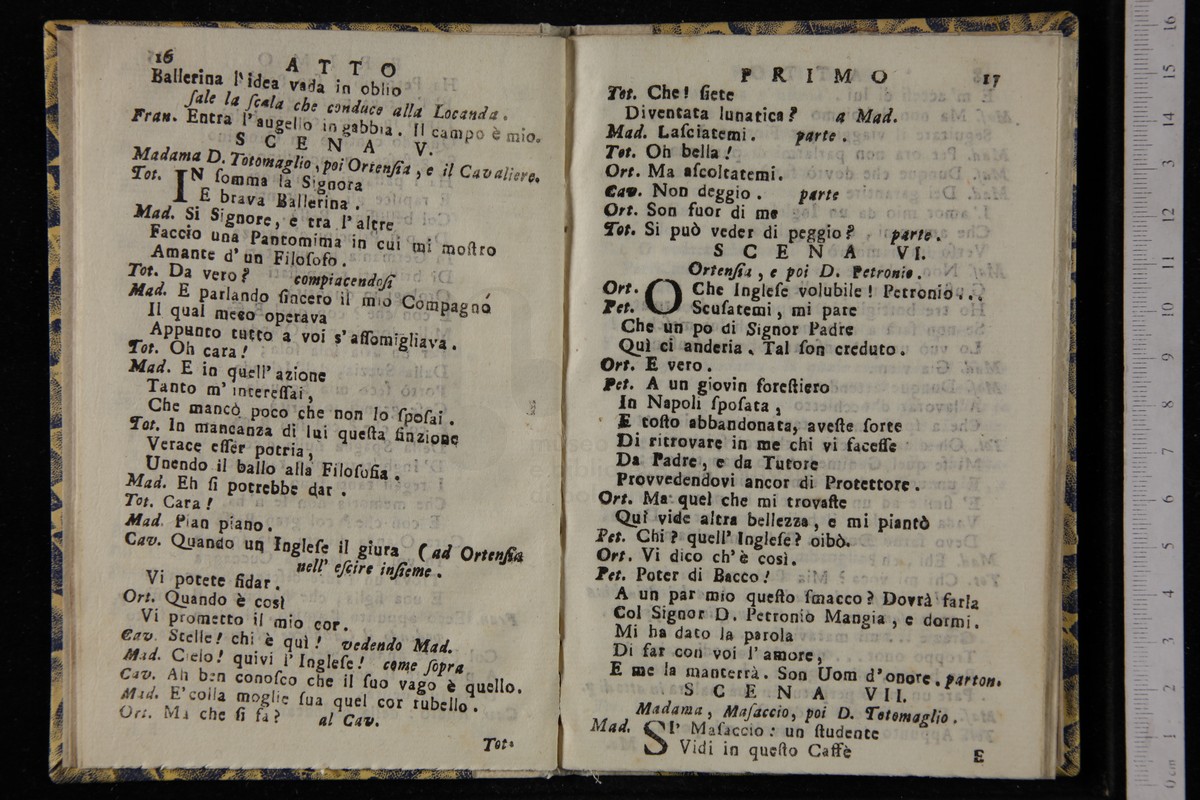 16
ATTO
Ballerina l'idea vada in oblio
ſale la ſcala che conduce alla Locanda.
Fran. Entra l'augello in gabbia. Il campo è mio.
SCENA V.
Madama D. Totomaglio, poi Ortenſia, e il Cavaliere.
Tot. IN ſomma la Signora
E brava Ballerina.
Mad. Si Signore, e tra l'altre
Faccio una Pantomima in cui mi moſtro
Amante d'un Filoſofo.
Tot. Da vero? compiacendoſi
Mad. E parlando ſincero il mio Compagno
Il qual meco operava
Appunto tutto a voi s'aſſomigliava.
Tot. Oh cara!
Mad. E in quell'azione
Tanto m'intereſſai,
Che mancò poco che non lo ſpoſai.
Tot. In mancanza di lui queſta finzione
Verace eſſer potria,
Unendo il ballo alla Filoſofia.
Mad. Eh ſi potrebbe dar.
Tot. Cara!
Mad. Pian piano.
Cav. Quando un Ingleſe il giura (ad Ortenſia
nell' eſcire inſieme.
Vi potete fidar.
Ort. Quando è così
Vi prometto il mio cor.
Cav. Stelle! chi è quì! vedendo Mad.
Mad. Cielo! quivi l'Ingleſe! come ſopra
Cav. Ah ben conoſco che il ſuo vago è quello.
Mad. E' colla moglie ſua quel cor rubello.
Ort. Ma che ſi fa? al Cav.
Tot.
PRIMO
17
Tot. Che! ſiete
Diventata lunatica? a Mad.
Mad. Laſciatemi. parte.
Tot. Oh bella!
Ort. Ma aſcoltatemi.
Cav. Non deggio. parte
Ort. Son fuor di me
Tot. Si può veder di peggio? parte.
SCENA VI.
Ortenſia, e poi D. Petronio.
Ort. O Che Ingleſe volubile! Petronio...
Pet. Scuſatemi, mi pare
Che un po di Signor Padre
Quì ci anderia. Tal ſon creduto.
Ort. E vero.
Pet. A un giovin foreſtiero
In Napoli ſpoſata,
E toſto abbandonata, aveſte ſorte
Di ritrovare in me chi vi faceſſe
Da Padre, e da Tutore
Provvedendovi ancor di Protettore.
Ort. Ma quel che mi trovaſte
Quì vide altra bellezza, e mi piantò
Pet. Chi? quell'Ingleſe? oibò.
Ort. Vi dico ch'è così.
Pet. Poter di Bacco!
A un par mio queſto ſmacco? Dovrà farla
Col Signor D. Petronio Mangia, e dormi.
Mi ha dato la parola
Di far con voi l'amore,
E me la manterrà. Son Uom d'onore. parton.
SCENA VII.
Madama, Maſaccio, poi D. Totomaglio.
Mad. SI' Maſaccio: un ſtudente
Vidi in queſto Caffè
E